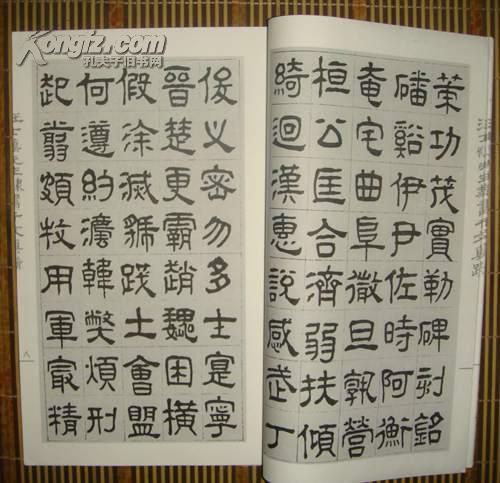 Kongfz.com
孔夫子旧书网
策功茂實勒碑刻銘
磻谿伊尹佐時阿衡
奄宅曲阜微旦孰營
桓公匡合濟弱扶傾
綺迴漢惠說感武丁
俊乂密勿多士寔寧
晉楚更霸趙魏困橫
假涂滅虢踐土會盟
何遵約灋韓弊煩刑
起翦頗牧用軍冣精
八